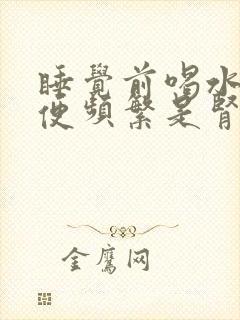 睡覺前喝水
便頻繁是腎
金鷹网